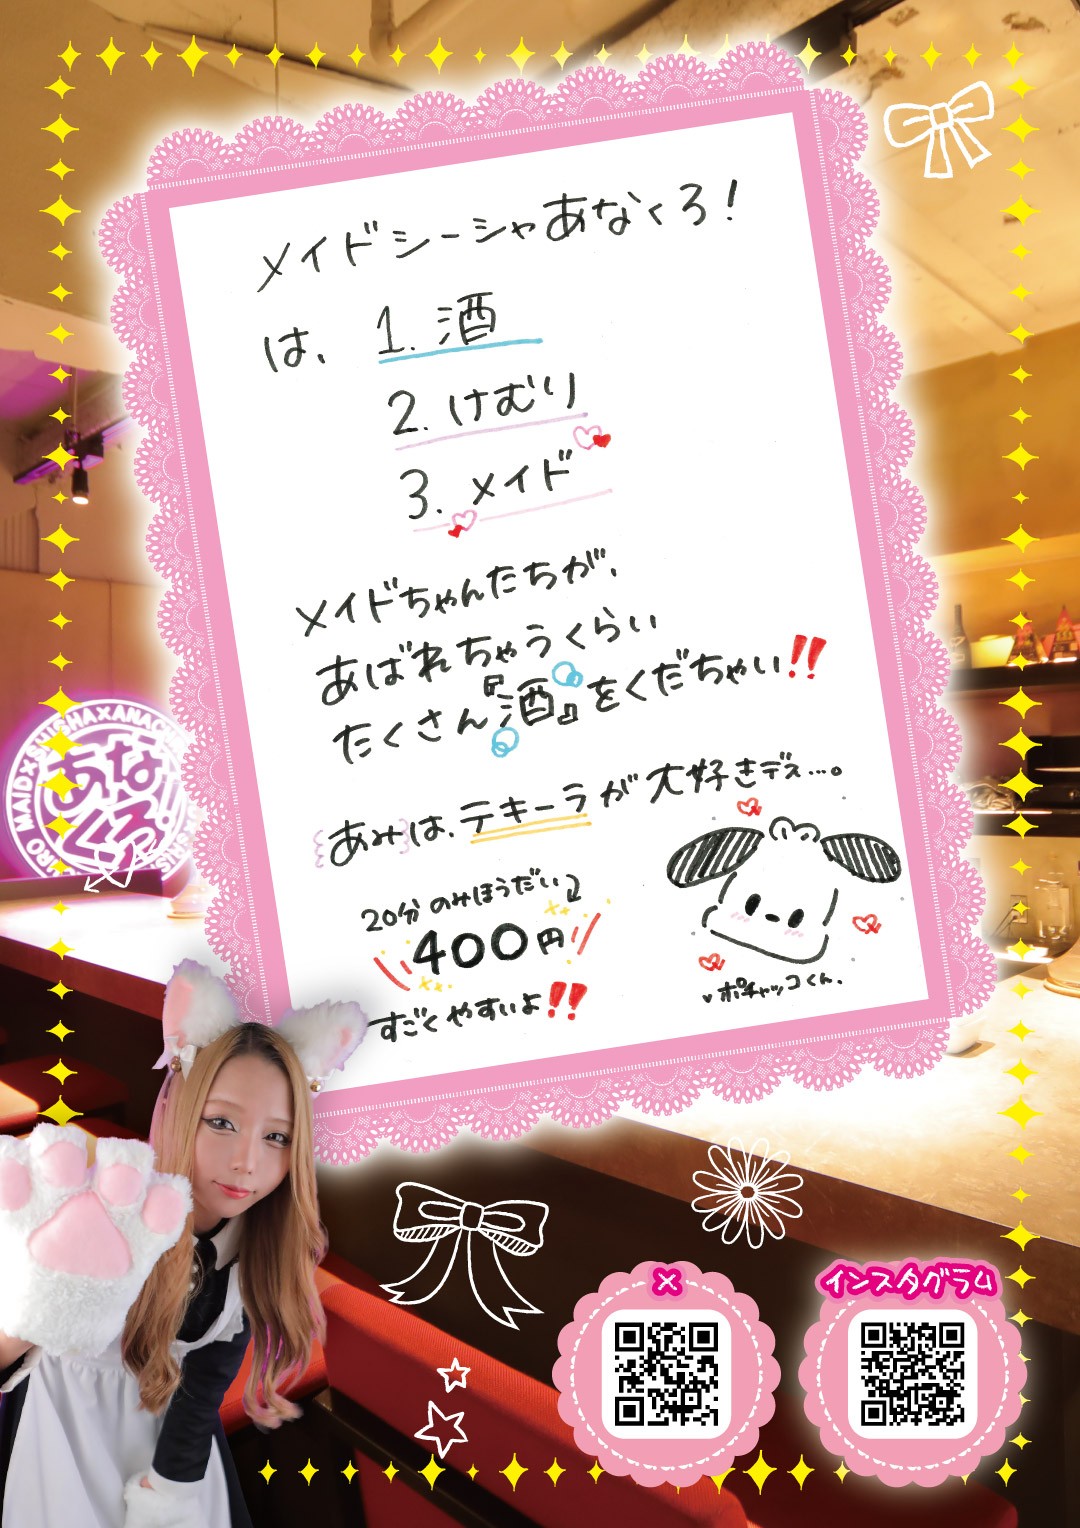 メイドシーシャあなくろ!
は、1.酒
2.けむり
3.メイド
メイドちゃんたちが、
あばれちゃうくらい
たくさん『酒』をくだちゃい!!
あみは、テキーラが大好きデス…。
20分のみほうだい
400円
すごくやすいよ!!
ポチャッコくん.
あな
くろ!
MAID×SHISHA×ANAC
X
インスタグラム